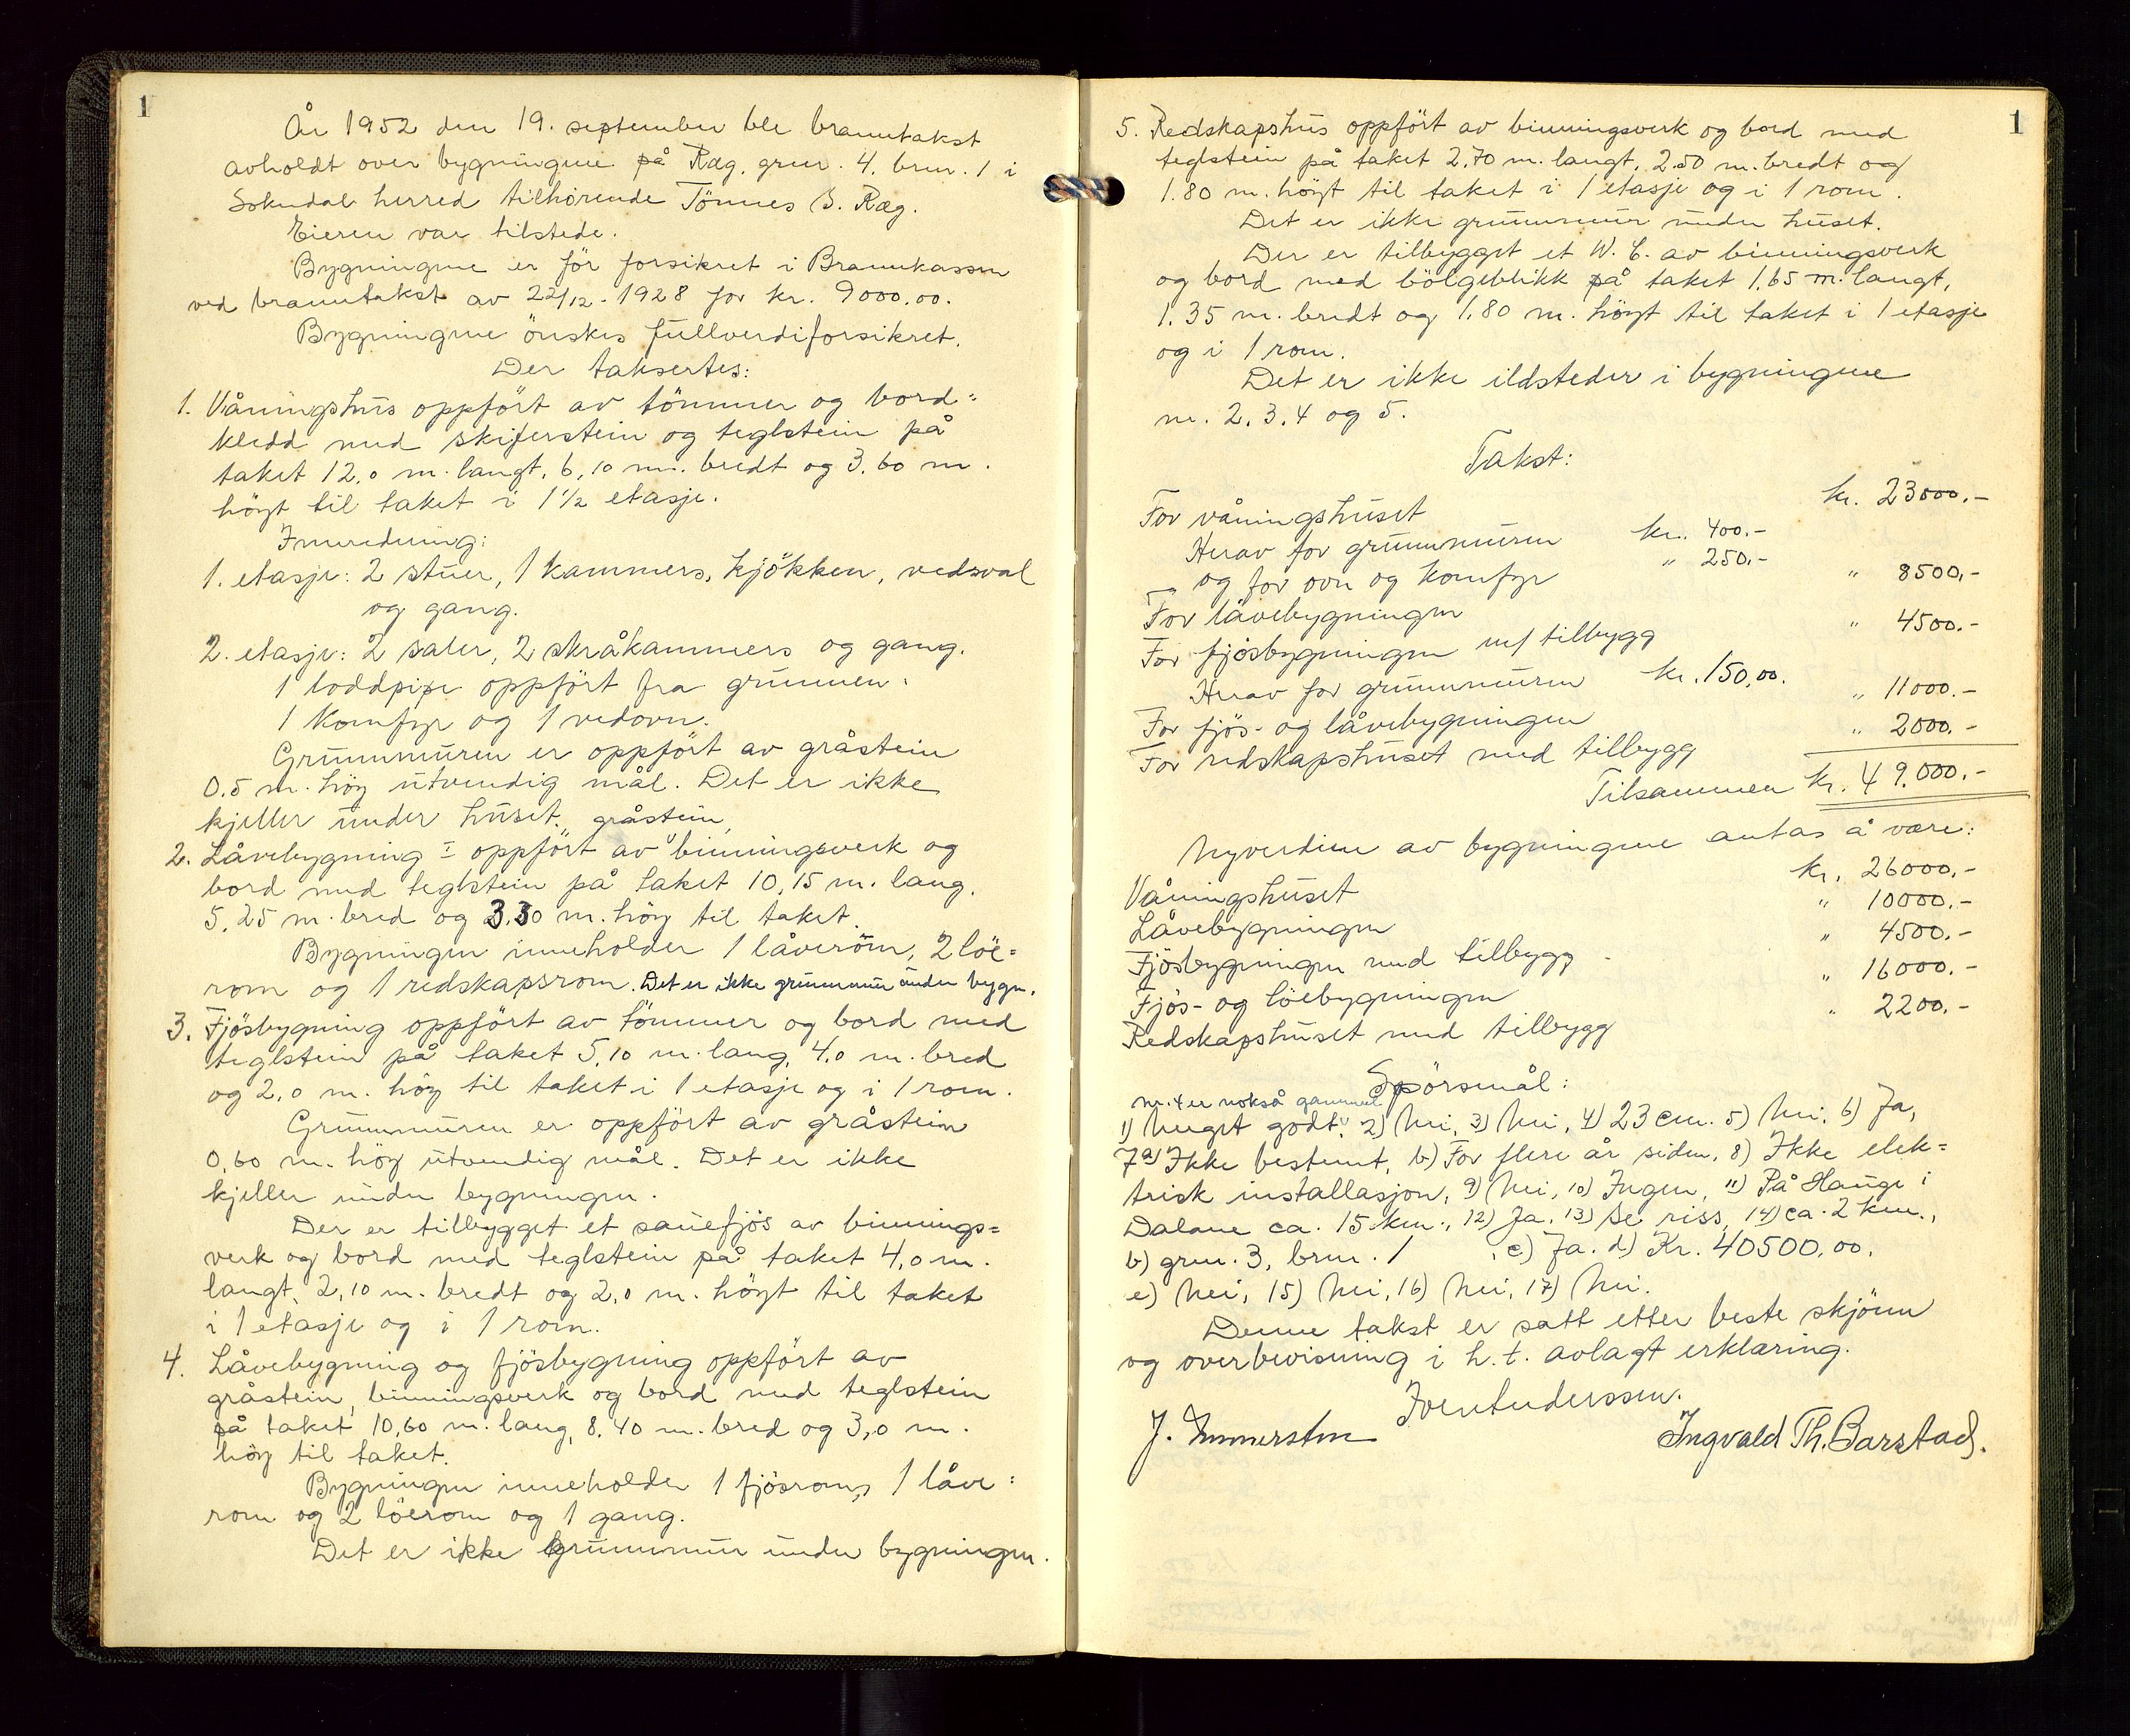 1
År 1952 den 19. september ble branntakst
avholdt over bygningene på Ræg, gnr. 4. bnr. 1 i
Sokndal herred tilhørende Tönnes S. Ræg.
Eieren var tilstede.
Bygningene er för forsikret i Brannkassen
ved branntakst av 22/12-1928 for kr. 9000.00.
Bygningene önskes fullverdiforsikret.
Der taksertes:
1. Våningshus oppfört av tömmer og bord=
kledd med skiferstein og teglstein på
taket 12,0 m. langt, 6,10 m. bredt og 3,60 m.
höyt til taket i 1½ etasje.
Innredning:
1. etasje: 2 stuer, 1 kammers, kjökken, vedsval
og gang.
2. etasje: 2 saler, 2 skråkammers og gang.
1 loddpipe oppfört fra grunnen.
1 komfyr og 1 vedovn.
Grunnmuren er oppfört av gråstein
0.5 m. höy utvendig mål. Det er ikke
kjeller under huset.
gråstein,
2. Låvebygning I oppfört av binningsverk og
bord med teglstein på taket 10,15 m. lang,
5,25 m. bred og 3,30 m. höy til taket.
Bygningen inneholder 1 låverom, 2 löe=
rom og 1 redskapsrom. Det er ikke grunnmur under bygn.
3. Fjösbygning oppfört av tömmer og bord med
teglstein på taket 5,10 m. lang, 4,0 m. bred
og 2,0 m. höy til taket i 1 etasje og i 1 rom.
Grunnmuren er oppfört av gråstein
0,60 m. höy utvendig mål. Det er ikke
kjeller under bygningen.
Der er tilbygget et sauefjös av binnings=
verk og bord med teglstein på taket 4,0 m.
langt, 2,10 m. bredt og 2,0 m. höyt til taket
i 1 etasje og i 1 rom.
4. Låvebygning og fjösbygning oppfört av
gråstein, binningsverk og bord med teglstein
på taket 10,60 m. lang, 8,40 m. bred og 3,0 m.
höy til taket.
Bygningen inneholder 1 fjösrom, 1 låve=
rom og 2 löerom og 1 gang.
Det er ikke grunnmur under bygningen.
1
5. Redskapshus oppfört av binningsverk og bord med
teglstein på taket 2,70 m. langt, 2,50 m. bredt og
1.80 m. höyt til taket i 1 etasje og i 1 rom.
Det er ikke grunnmur under huset.
Der er tilbygget et W. C. av binningsverk
og bord med bölgeblikk på taket 1,65 m. langt,
1.35 m. bredt og 1,80 m. höyt til taket i 1 etasje
og i 1 rom.
Det er ikke ildsteder i bygningene
nr. 2. 3. 4 og 5.
Takst:
For våningshuset kr. 23000.-
Herav for grunnmuren kr. 400.-
" og for ovn og komfyr " 250.-
For låvebygningen " 8500.-
For fjösbygningen m/ tilbygg " 4500.-
Herav for grunnmuren kr. 150,00.
For fjös- og låvebygningen " 11000.-
For redskapshuset med tilbygg " 2000.-
Tilsammen kr. 49.000.-
Nyverdien av bygningene antas å være:
Våningshuset kr. 26000.-
Låvebygningen " 10000.-
Fjösbygningen med tilbygg " 4500.-
Fjös- og löebygningen " 16000.-
Redskapshuset med tilbygg " 2200.-
Spörsmål:
nr. 4 er nokså gammel
1) Meget godt, 2) Nei, 3) Nei, 4) 23 cm. 5) Nei, 6) Ja,
7a) Ikke bestemt, b) For flere år siden, 8) Ikke elek=
trisk installasjon, 9) Nei, 10) Ingen, 11) På Hauge i
Dalane ca. 15 km., 12) Ja, 13) Se riss, 14) ca. 2 km.,
b) gnr. 3, bnr. 1, c) Ja. d) Kr. 40500,00.
e) Nei, 15) Nei, 16) Nei, 17) Nei.
Denne takst er satt etter beste skjönn
og overbevisning i h.t. avlagt erklæring.
Iver Anderssen.
J. Emmerston Ingvald Th. Barstad.